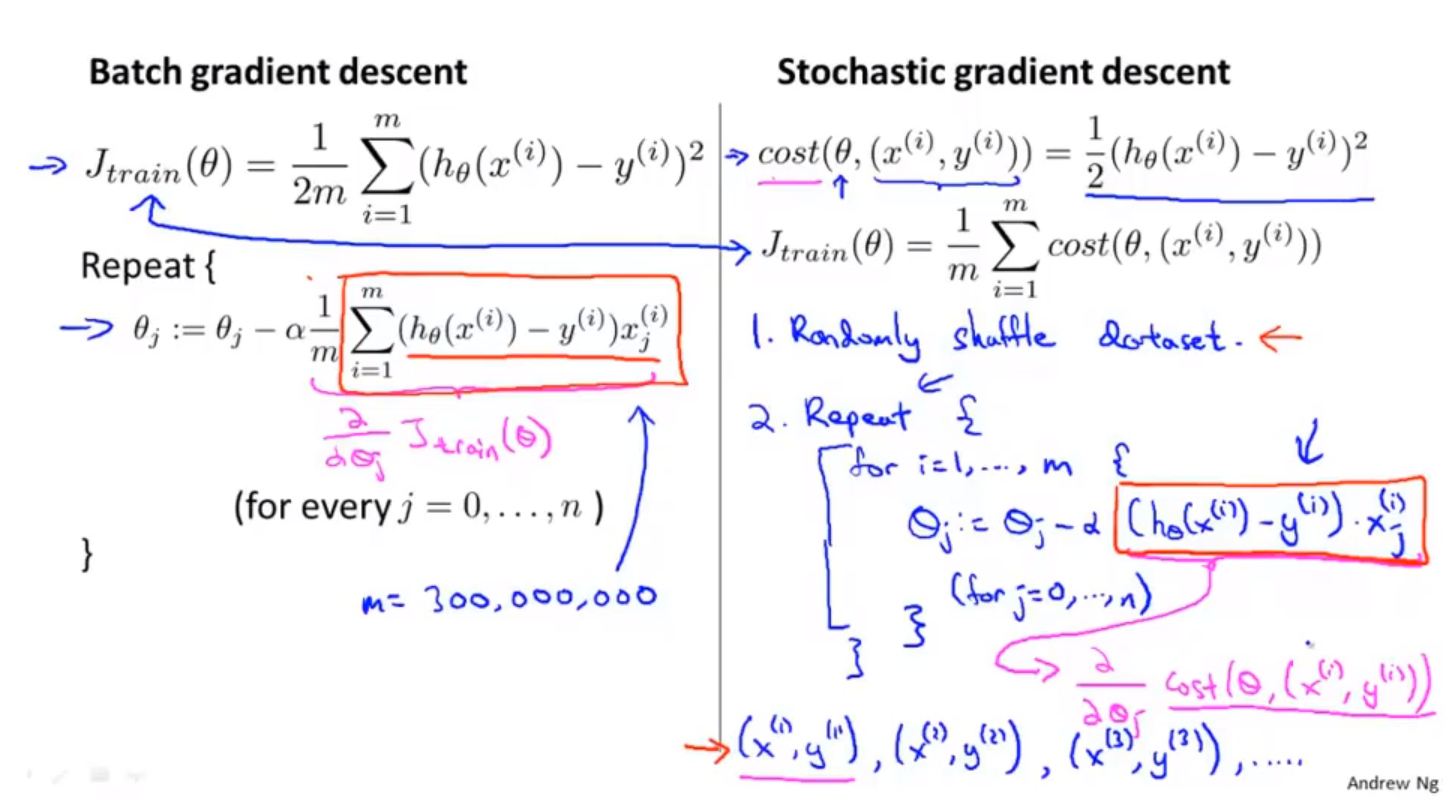 Batch gradient descent
J_{train}(θ) = \frac{1}{2m} \sum_{i=1}^{m} (h_θ(x^{(i)}) − y^{(i)})^2
Repeat {
θ_j := θ_j − α \frac{1}{m} \sum_{i=1}^{m} (h_θ(x^{(i)}) − y^{(i)})x_j^{(i)}
\frac{∂}{∂θ_j} J_{train}(θ)
(for every j = 0, . . . , n )
}
m = 300,000,000
Stochastic gradient descent
→ cost(θ, (x^{(i)}, y^{(i)})) = \frac{1}{2} (h_θ(x^{(i)}) − y^{(i)})^2
J_{train}(θ) = \frac{1}{m} \sum_{i=1}^{m} cost(θ, (x^{(i)}, y^{(i)}))
1. Randomly shuffle dataset.
2. Repeat {
for i=1,..., m {
θ_j := θ_j − α (h_θ(x^{(i)}) − y^{(i)}) · x_j^{(i)}
(for j=0,...,n)
}
}
\frac{∂}{∂θ_j} cost(θ, (x^{(i)}, y^{(i)}))
→ (x^{(1)}, y^{(1)}), (x^{(2)}, y^{(2)}), (x^{(3)}, y^{(3)}), .....
Andrew Ng